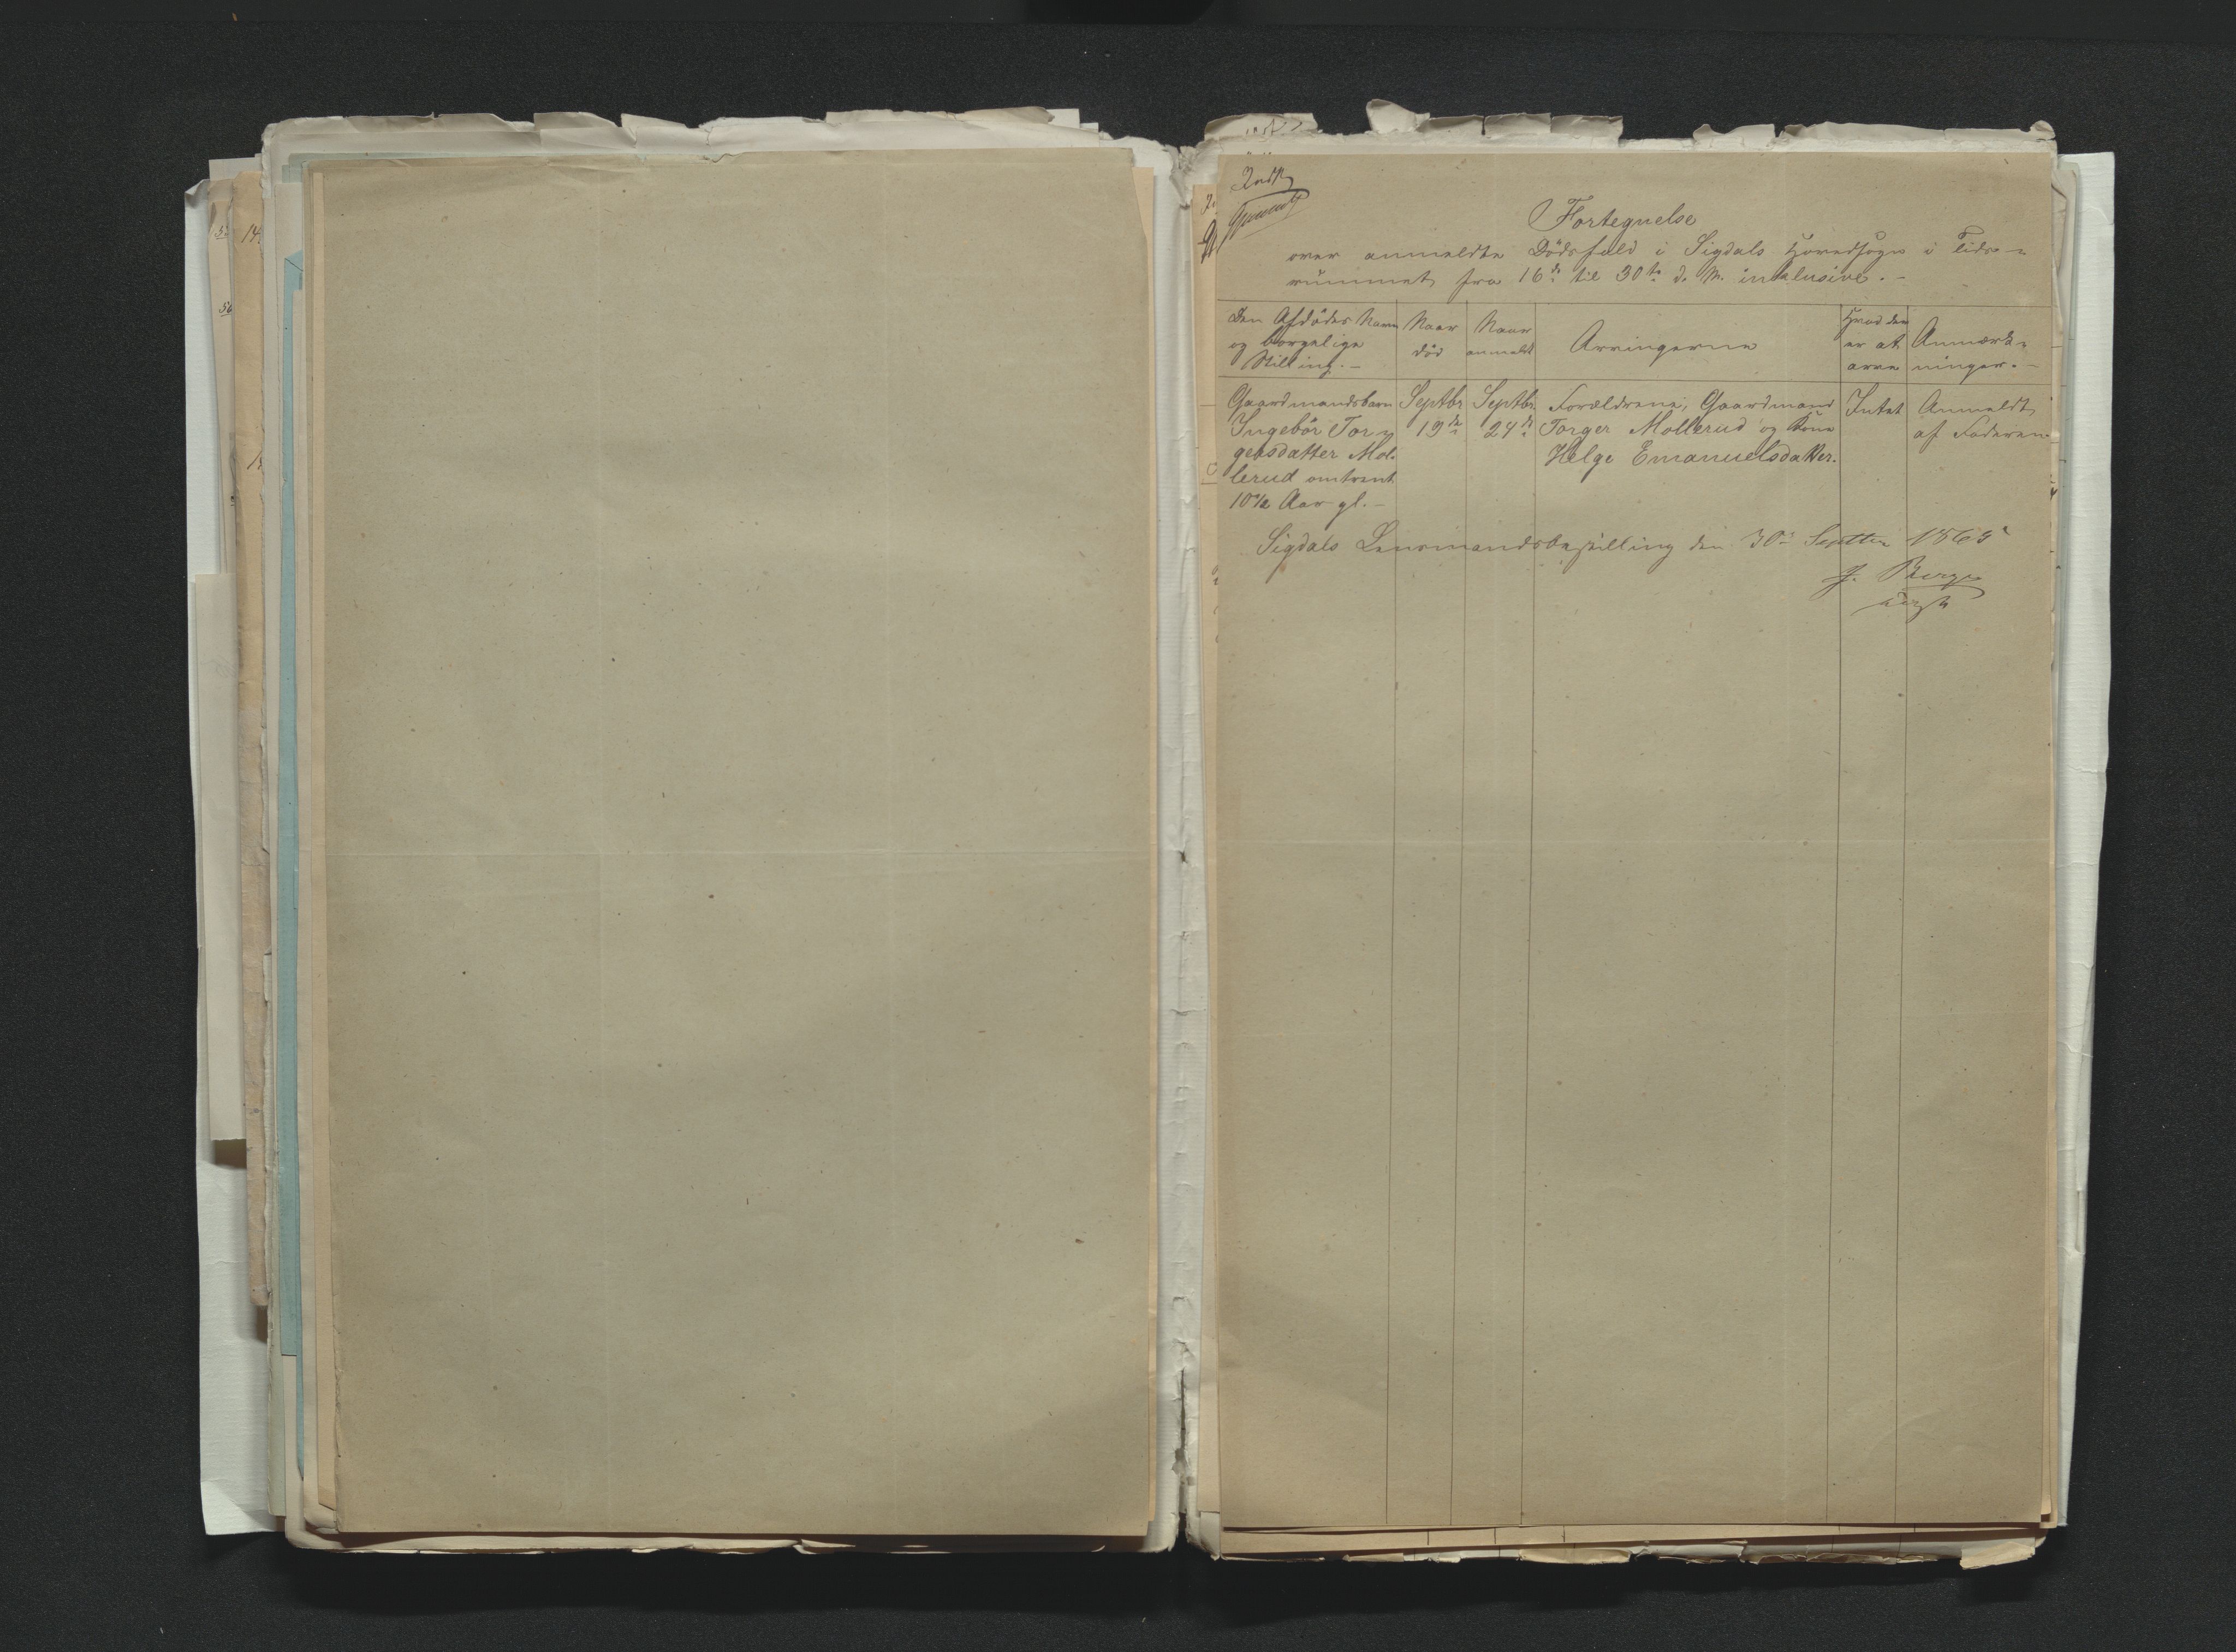 Indk
Fortegnelse
over anmeldte Dödsfald i Sigdals Hovedsogn i Tids-
rummet fra 16de til 30te d. M. inklusive. -
Den Afdödes Navn og borgerlige Stilling. -
Naar död
Naar anmeldt
Arvingerne
Hvad der er at arve
Anmærk-
ninger. -
Gaardmandsbarn
Ingebör Tor-
gersdatter Mol-
lerud omtrent
10½ Aar gl. -
Septbr
19de
Septbr
24de
Forældrene, Gaardmand
Torger Mollerud og Kone
Helge Emanuelsdatter.
Intet
Anmeldt
af Faderen
Sigdals Lensmandsbestilling den 30te Septbr 1865
J. Berge